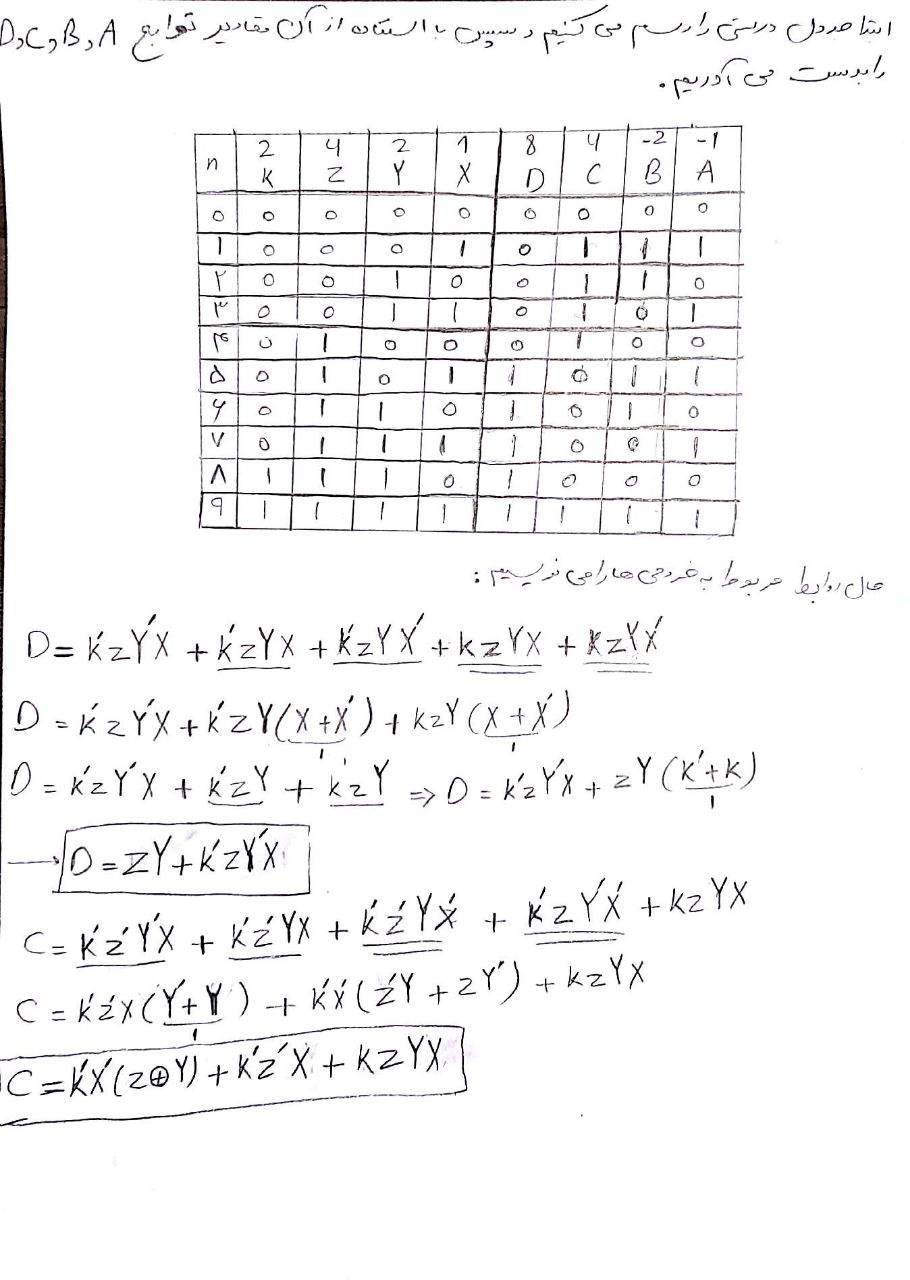 ابتدا جدول درستی را رسم می کنیم و سپس با استفاده از آن مقادیر توابع D,C,B,A
را بدست می آوریم.
n 2 K 4 Z 2 Y 1 X 8 D 4 C -2 B -1 A
0 0 0 0 0 0 0 0 0
۱ 0 0 0 1 0 1 1 1
۲ 0 0 1 0 0 1 1 0
۳ 0 0 1 1 0 1 0 1
۴ 0 1 0 0 0 1 0 0
۵ 0 1 0 1 1 0 1 1
۶ 0 1 1 0 1 0 1 0
۷ 0 1 1 1 1 0 0 1
۸ 1 1 1 0 1 0 0 0
۹ 1 1 1 1 1 1 1 1
حال روابط مربوط به خروجی ها را می نویسیم:
D = K'ZY'X + K'ZYX + K'ZYX' + KZYX + KZYX'
D = K'ZY'X + K'ZY(X+X') + KZY(X+X')
1 1
D = K'ZY'X + K'ZY + KZY => D = K'ZY'X + ZY(K'+K)
1
→ D = ZY + K'ZY'X
C = K'Z'Y'X + K'Z'YX + K'Z'YX' + K'ZY'X' + KZYX
C = K'Z'X(Y'+Y) + K'X'(Z'Y + ZY') + KZYX
1
C = K'X'(Z⊕Y) + K'Z'X + KZYX